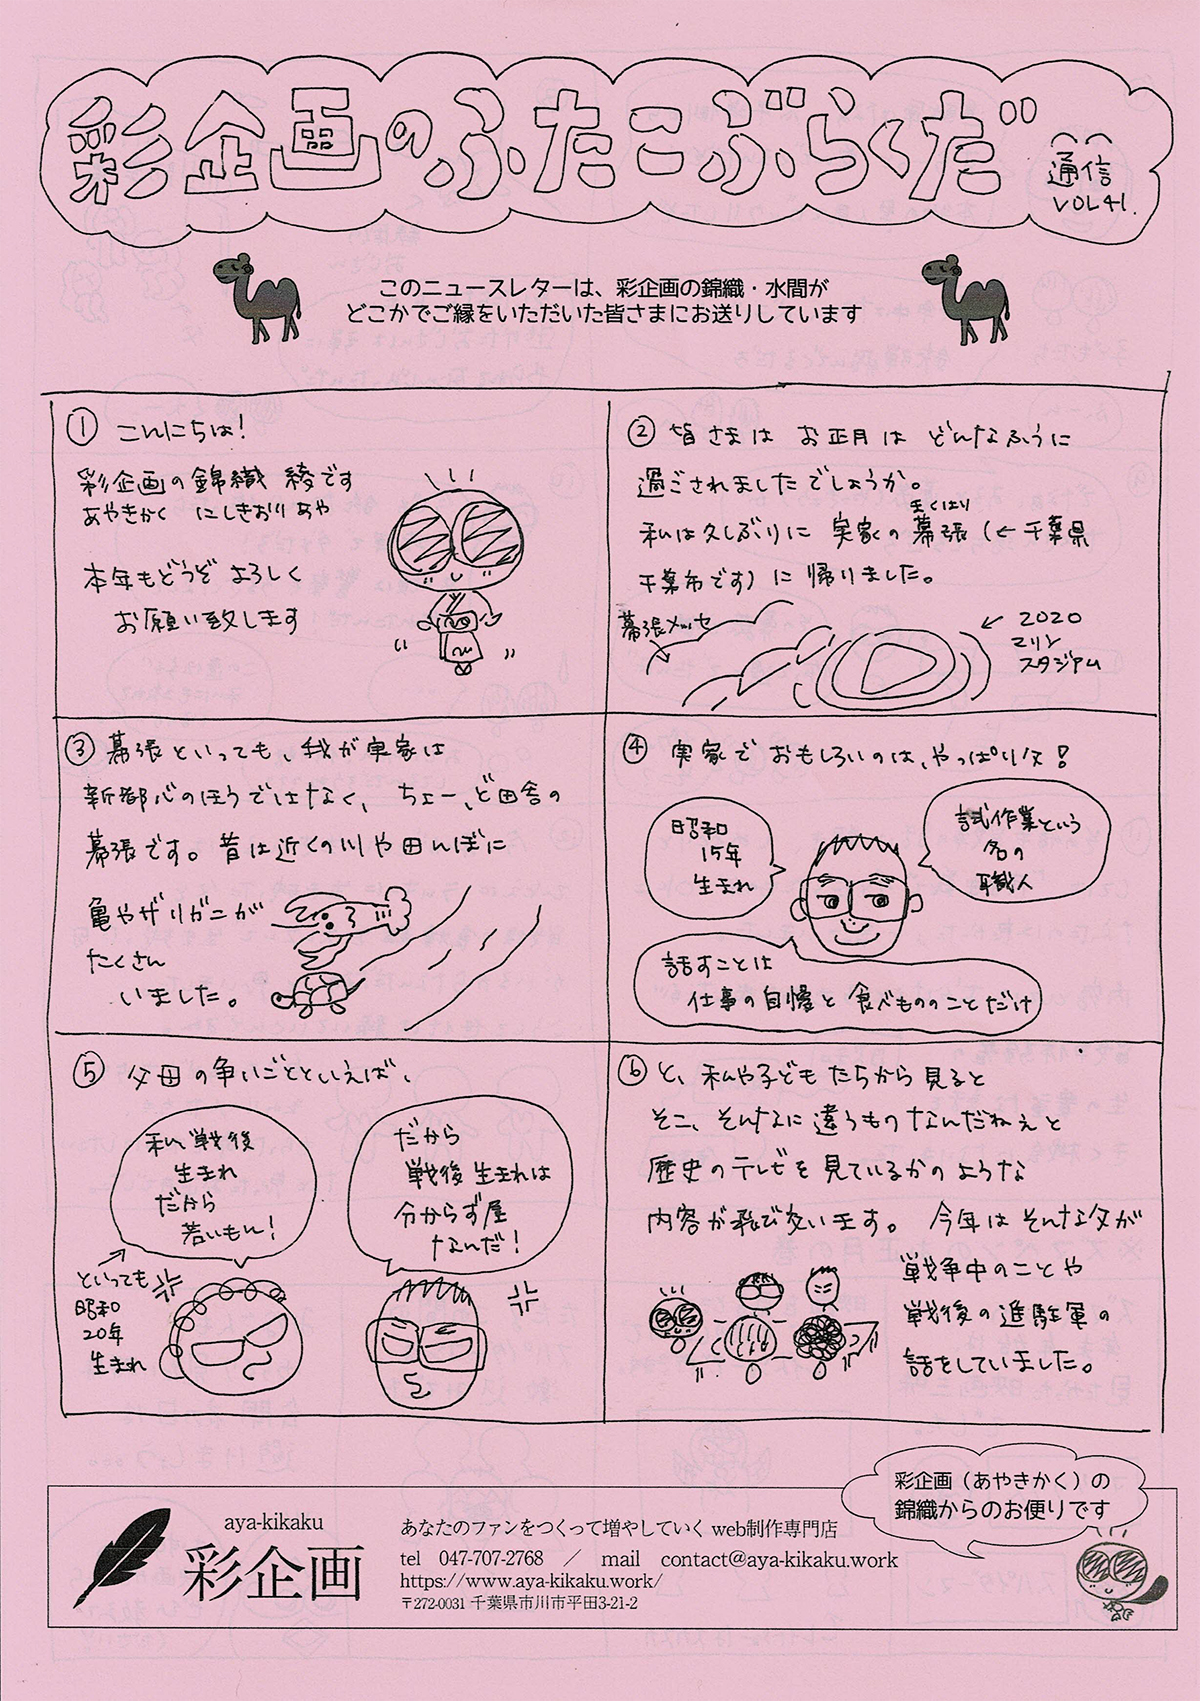 彩企画のふたこぶらくだ
通信
VOL41.
このニュースレターは、彩企画の錦織・水間が
どこかでご縁をいただいた皆さまにお送りしています
① こんにちは!
彩企画の錦織 綾です
あやきかく にしきおり あや
本年もどうぞ よろしく
お願い致します
② 皆さまは お正月は どんなふうに
過ごされましたでしょうか。
まくはり
私は久しぶりに 実家の幕張(←千葉県
千葉市です)に 帰りました。
幕張メッセ
2020
マリン
スタジアム
③ 幕張といっても、我が実家は
新都心のほうではなく、ちょーっと田舎の
幕張です。昔は近くの川や田んぼに
亀やザリガニが
たくさん
いました。
④ 実家で おもしろいのは、やっぱり父!
昭和
15年
生まれ
試作業という
名の
職人
話すことは
仕事の自慢と 食べもののことだけ
⑤ 父母の争いごとといえば、
私、戦後
生まれ
だから
若いもん!
だから
戦後生まれは
分からず屋
なんだ!
といっても
昭和
20年
生まれ
⑥ と、私や子どもたちから見ると
そこ、そんなに違うものなんだねぇと
歴史のテレビを見ているかのような
内容が飛び交います。 今年は そんな父が
戦争中のことや
戦後の進駐軍の
話をしていました。
彩企画(あやきかく)の
錦織からのお便りです
aya-kikaku
彩企画
あなたのファンをつくって増やしていく web制作専門店
tel 047-707-2768 / mail contact@aya-kikaku.work
https://www.aya-kikaku.work/
〒272-0031 千葉県市川市平田3-21-2